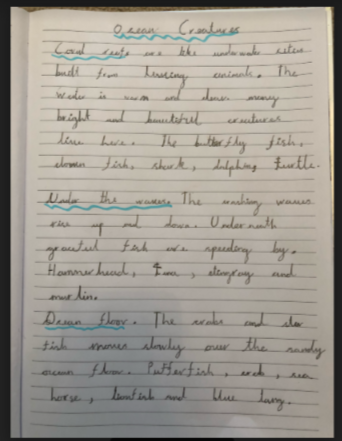 Ocean Creatures
Coral reefs are like underwater cities
built from housing animals. The
water is warm and clear many
bright and beautiful creatures
live here. The butterfly fish,
clown fish, shark, dolphins turtle.
Under the waves. The crashing waves
rise up and down. Underneath
graceful fish are speeding by.
Hammerhead, tuna, stingray and
marlin.
Ocean floor. The crabs and star
fish moves slowly over the sandy
ocean floor. Pufferfish, crab, sea
horse, lionfish and blue tang.